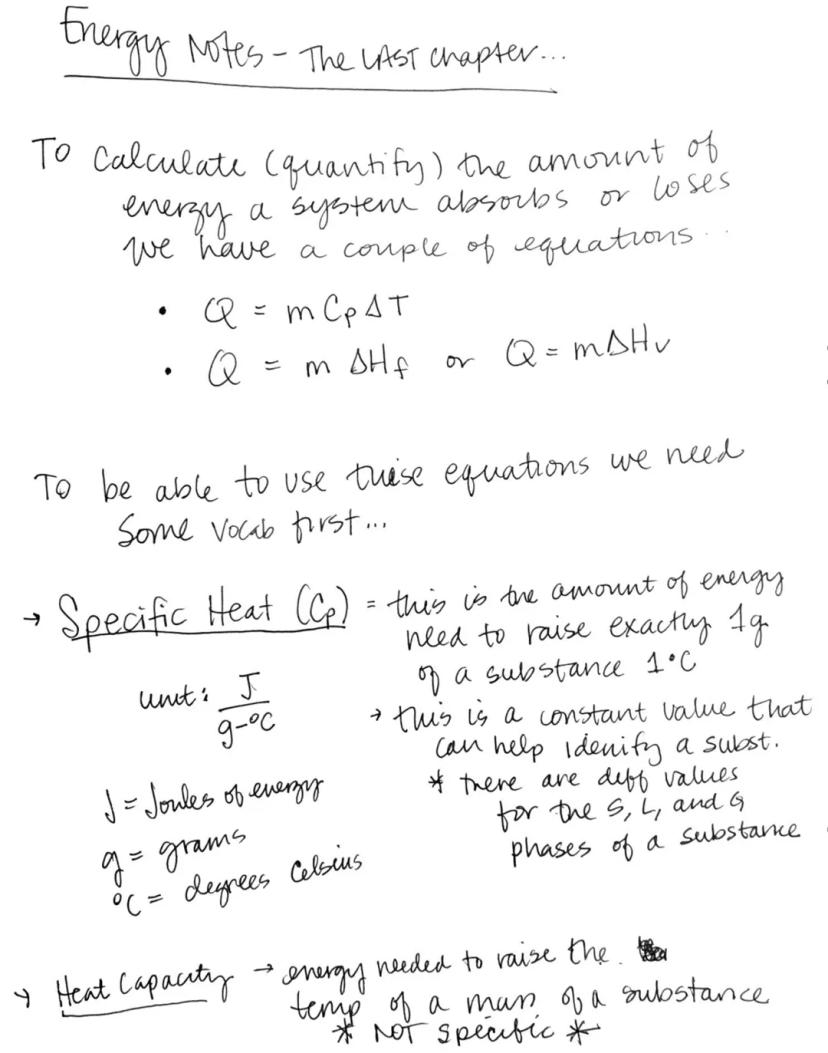 Energy Notes - The LAST Chapter...
To calculate (quantify) the amount of
energy a system absorbs or loses
we have a couple of equations...
• Q = m Cp ΔT
• Q = m ΔHf or Q = mΔHv
To be able to use these equations we need
some vocab first...
→ Specific Heat (Cp) = this is the amount of energy
need to raise exactly 1g
of a substance 1°C
unit: J/g-°C
→ this is a constant value that
can help idenify a subst.
* there are diff values
for the S, L, and G
phases of a substance
J = Joules of energy
g = grams
°C = degrees Celsius
→ Heat Capacity → energy needed to raise the
temp of a mass of a substance
* NOT specific *